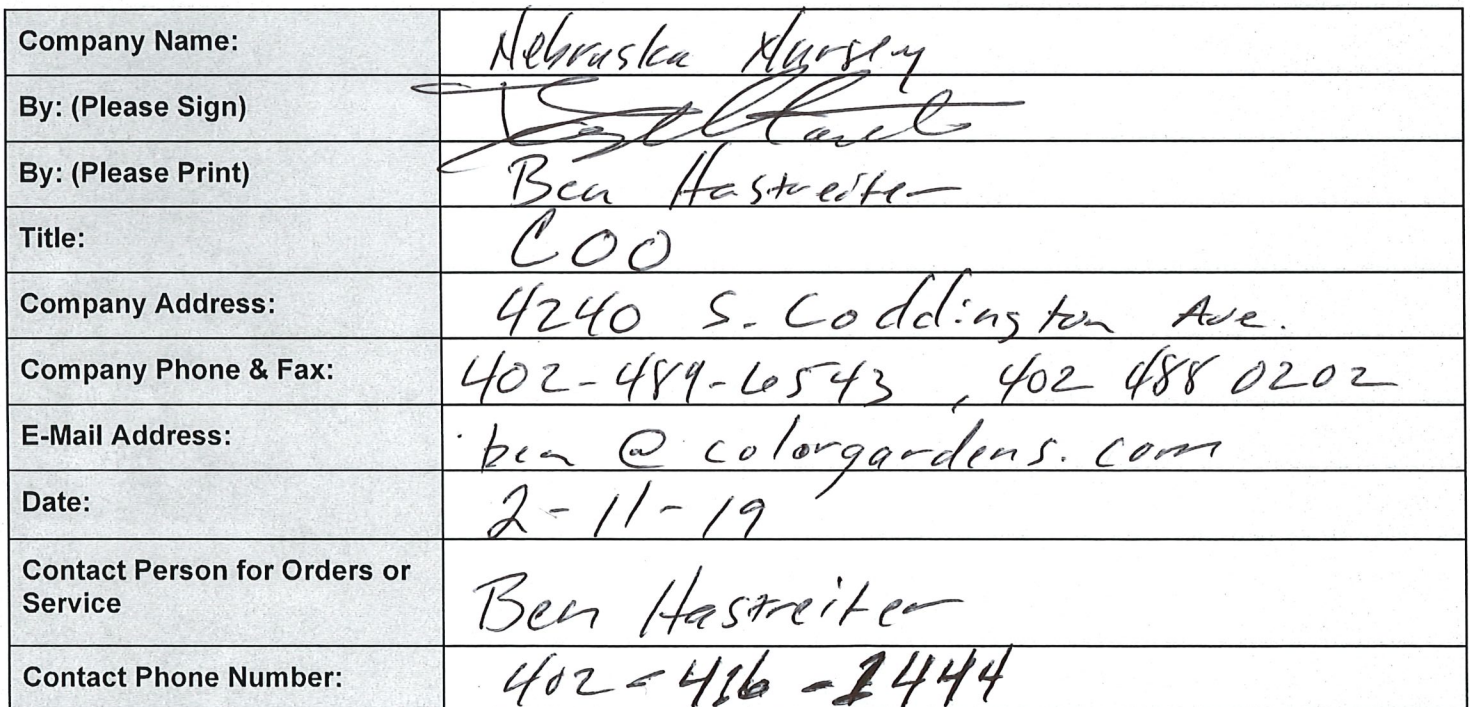 Company Name: Nebraska Nursery
By: (Please Sign)
By: (Please Print) Ben Hastreiter
Title: COO
Company Address: 4240 S. Coddington Ave.
Company Phone & Fax: 402-489-6543 , 402 488 0202
E-Mail Address: ben @ colorgardens.com
Date: 2-11-19
Contact Person for Orders or
Service Ben Hastreiter
Contact Phone Number: 402-416-1444